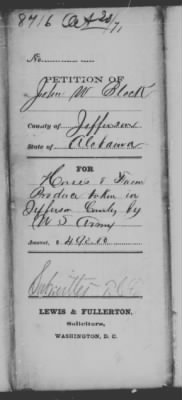 8716 Oct 20/71
No.
PETITION OF
John W Block
County of Jefferson
State of Alabama
FOR
Horses & Farm
Produce taken in
Jefferson County by
U S Army
Amount, $
Submitted
LEWIS & FULLERTON,
Solicitors,
WASHINGTON, D. C.